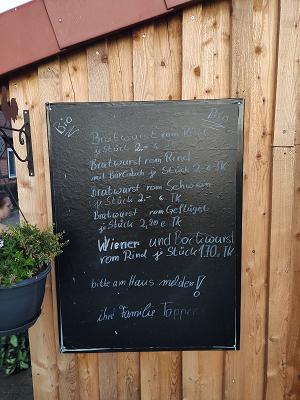 Bio Bio
Bratwurst vom Rind
je Stück 2.-€
Bratwurst vom Rind
mit Bärlauch je Stück 2.-€ TK
Bratwurst vom Schwein
je Stück 2.- €. TK
Bratwurst vom Geflügel
je Stück 2,20 € TK
Wiener und Bockwurst
vom Rind je Stück 1.70, TK
bitte am Haus melden!
ihre Familie Tapper